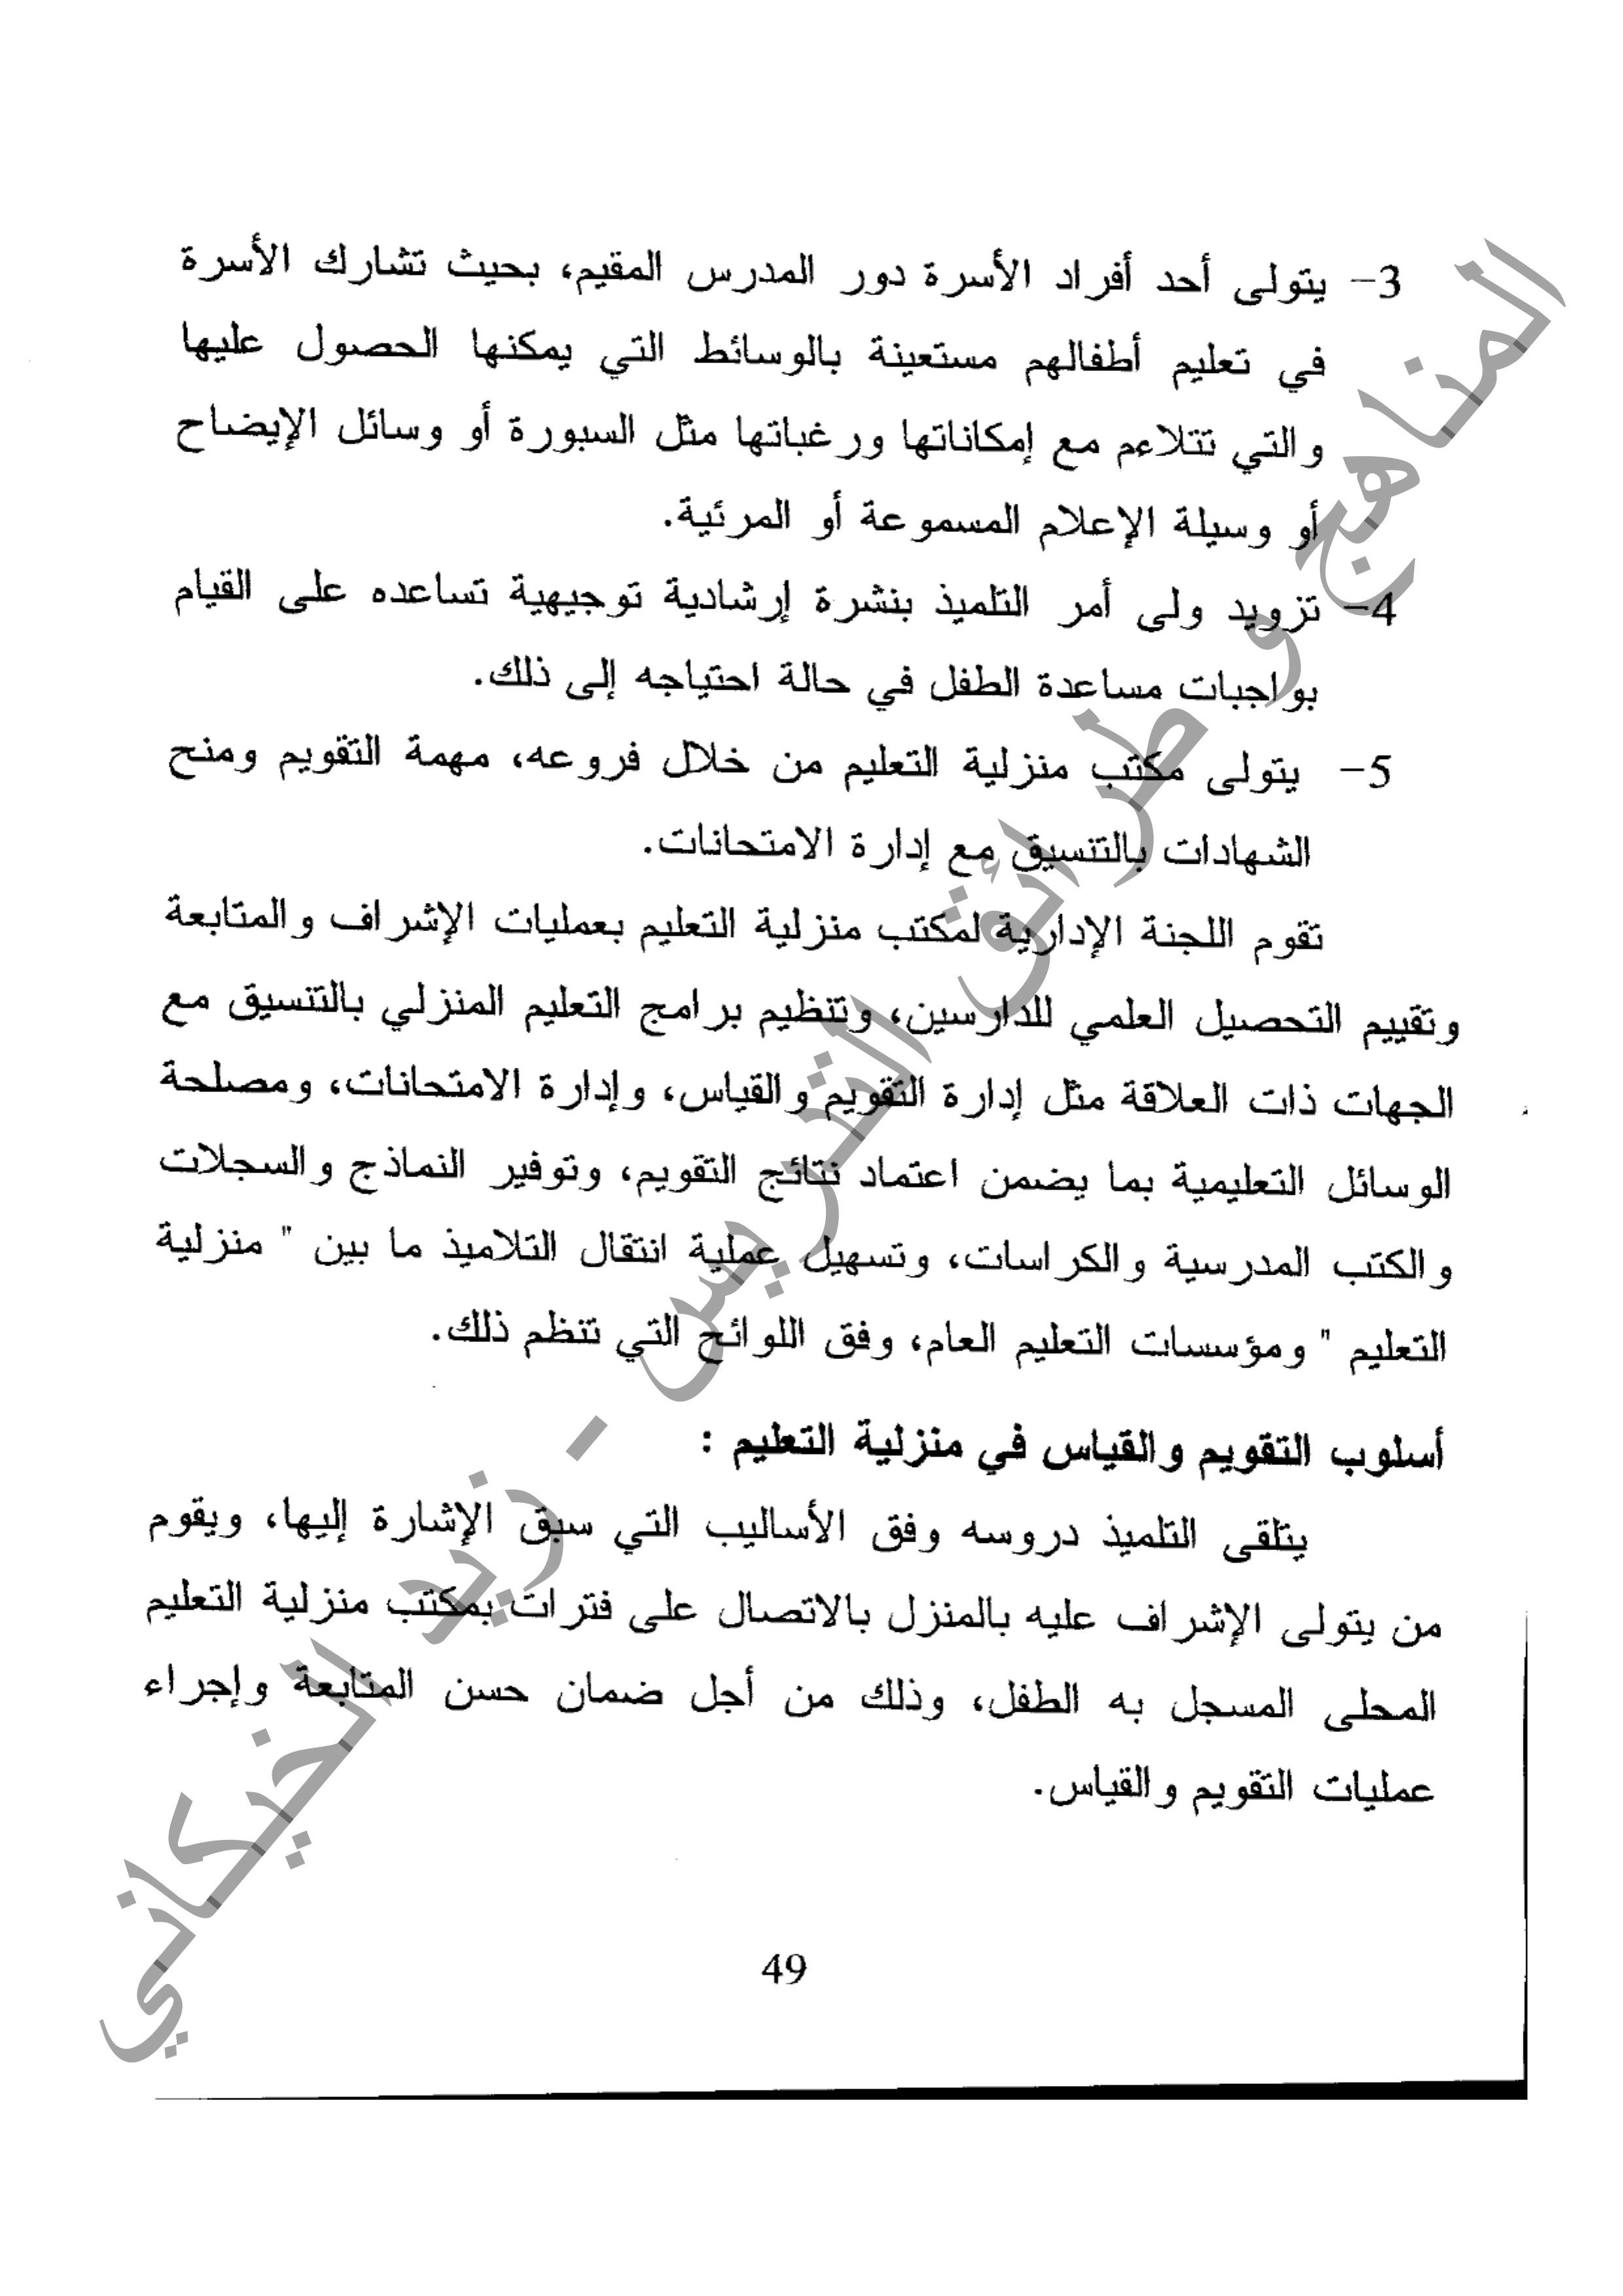 3- يتولى أحد أفراد الأسرة دور المدرس المقيم، بحيث تشارك الأسرة
في تعليم أطفالهم مستعينة بالوسائط التي يمكنها الحصول عليها
والتي تتلاءم مع إمكاناتها ورغباتها مثل السبورة أو وسائل الإيضاح
أو وسيلة الإعلام المسموعة أو المرئية.
4- تزويد ولى أمر التلميذ بنشرة إرشادية توجيهية تساعده على القيام
بواجبات مساعدة الطفل في حالة احتياجه إلى ذلك.
5- يتولى مكتب منزلية التعليم من خلال فروعه، مهمة التقويم ومنح
الشهادات بالتنسيق مع إدارة الامتحانات.
تقوم اللجنة الإدارية لمكتب منزلية التعليم بعمليات الإشراف والمتابعة
وتقييم التحصيل العلمي للدارسين، وتنظيم برامج التعليم المنزلي بالتنسيق مع
الجهات ذات العلاقة مثل إدارة التقويم والقياس، وإدارة الامتحانات، ومصلحة
الوسائل التعليمية بما يضمن اعتماد نتائج التقويم، وتوفير النماذج والسجلات
والكتب المدرسية والكراسات، وتسهيل عملية انتقال التلاميذ ما بين " منزلية
التعليم " ومؤسسات التعليم العام، وفق اللوائح التي تنظم ذلك.
أسلوب التقويم والقياس في منزلية التعليم :
يتلقى التلميذ دروسه وفق الأساليب التي سبق الإشارة إليها، ويقوم
من يتولى الإشراف عليه بالمنزل بالاتصال على فترات بمكتب منزلية التعليم
المحلى المسجل به الطفل، وذلك من أجل ضمان حسن المتابعة وإجراء
عمليات التقويم والقياس.
49
المناهج و طرائق التدريس - زيد الخيكاني